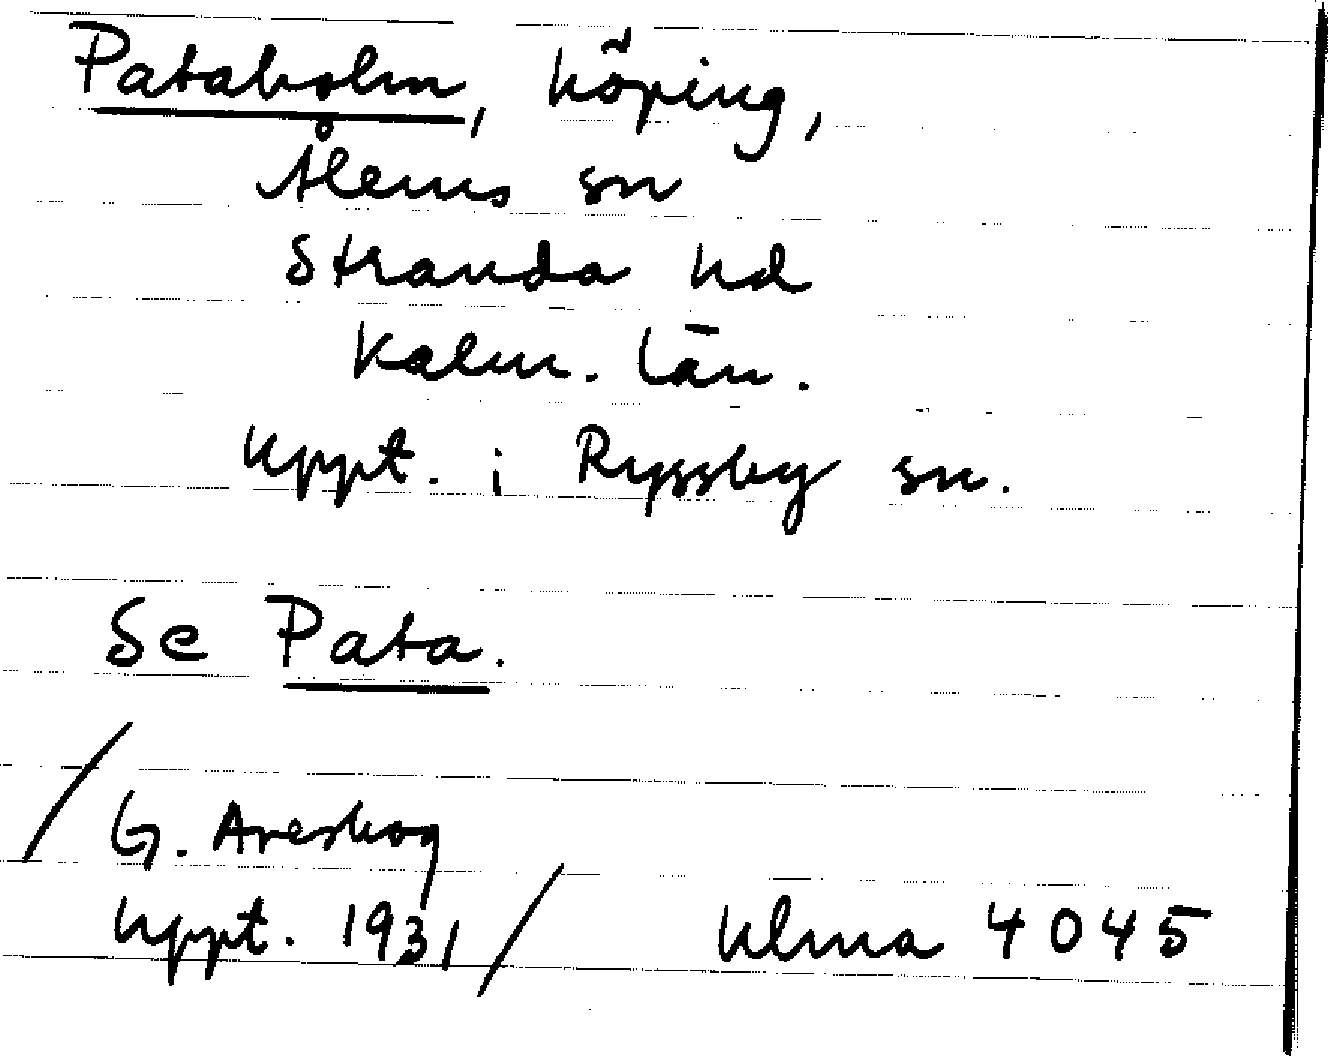 Pataholm, köping,
Ålems sn
Stranda hd
Kalm. län.
Uppt. i Ryssby sn.
Se Pata.
/G. Areskog
Uppt. 1931/ Ulma 4045